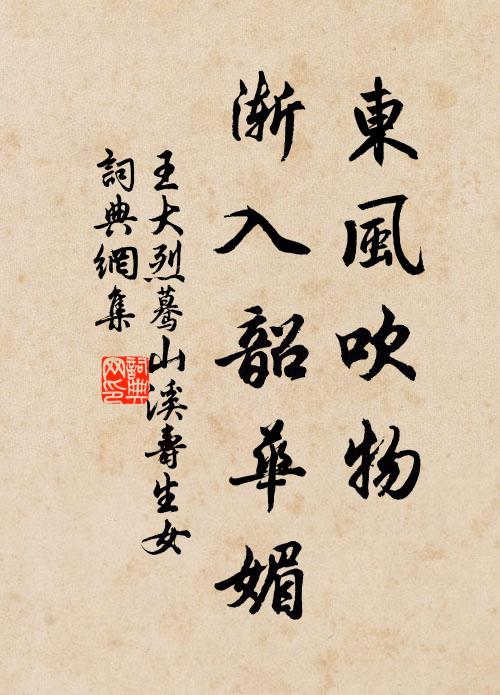 東風吹物
漸入韶華媚
王大烈驀山溪壽生女
詞典網集
詞典网印